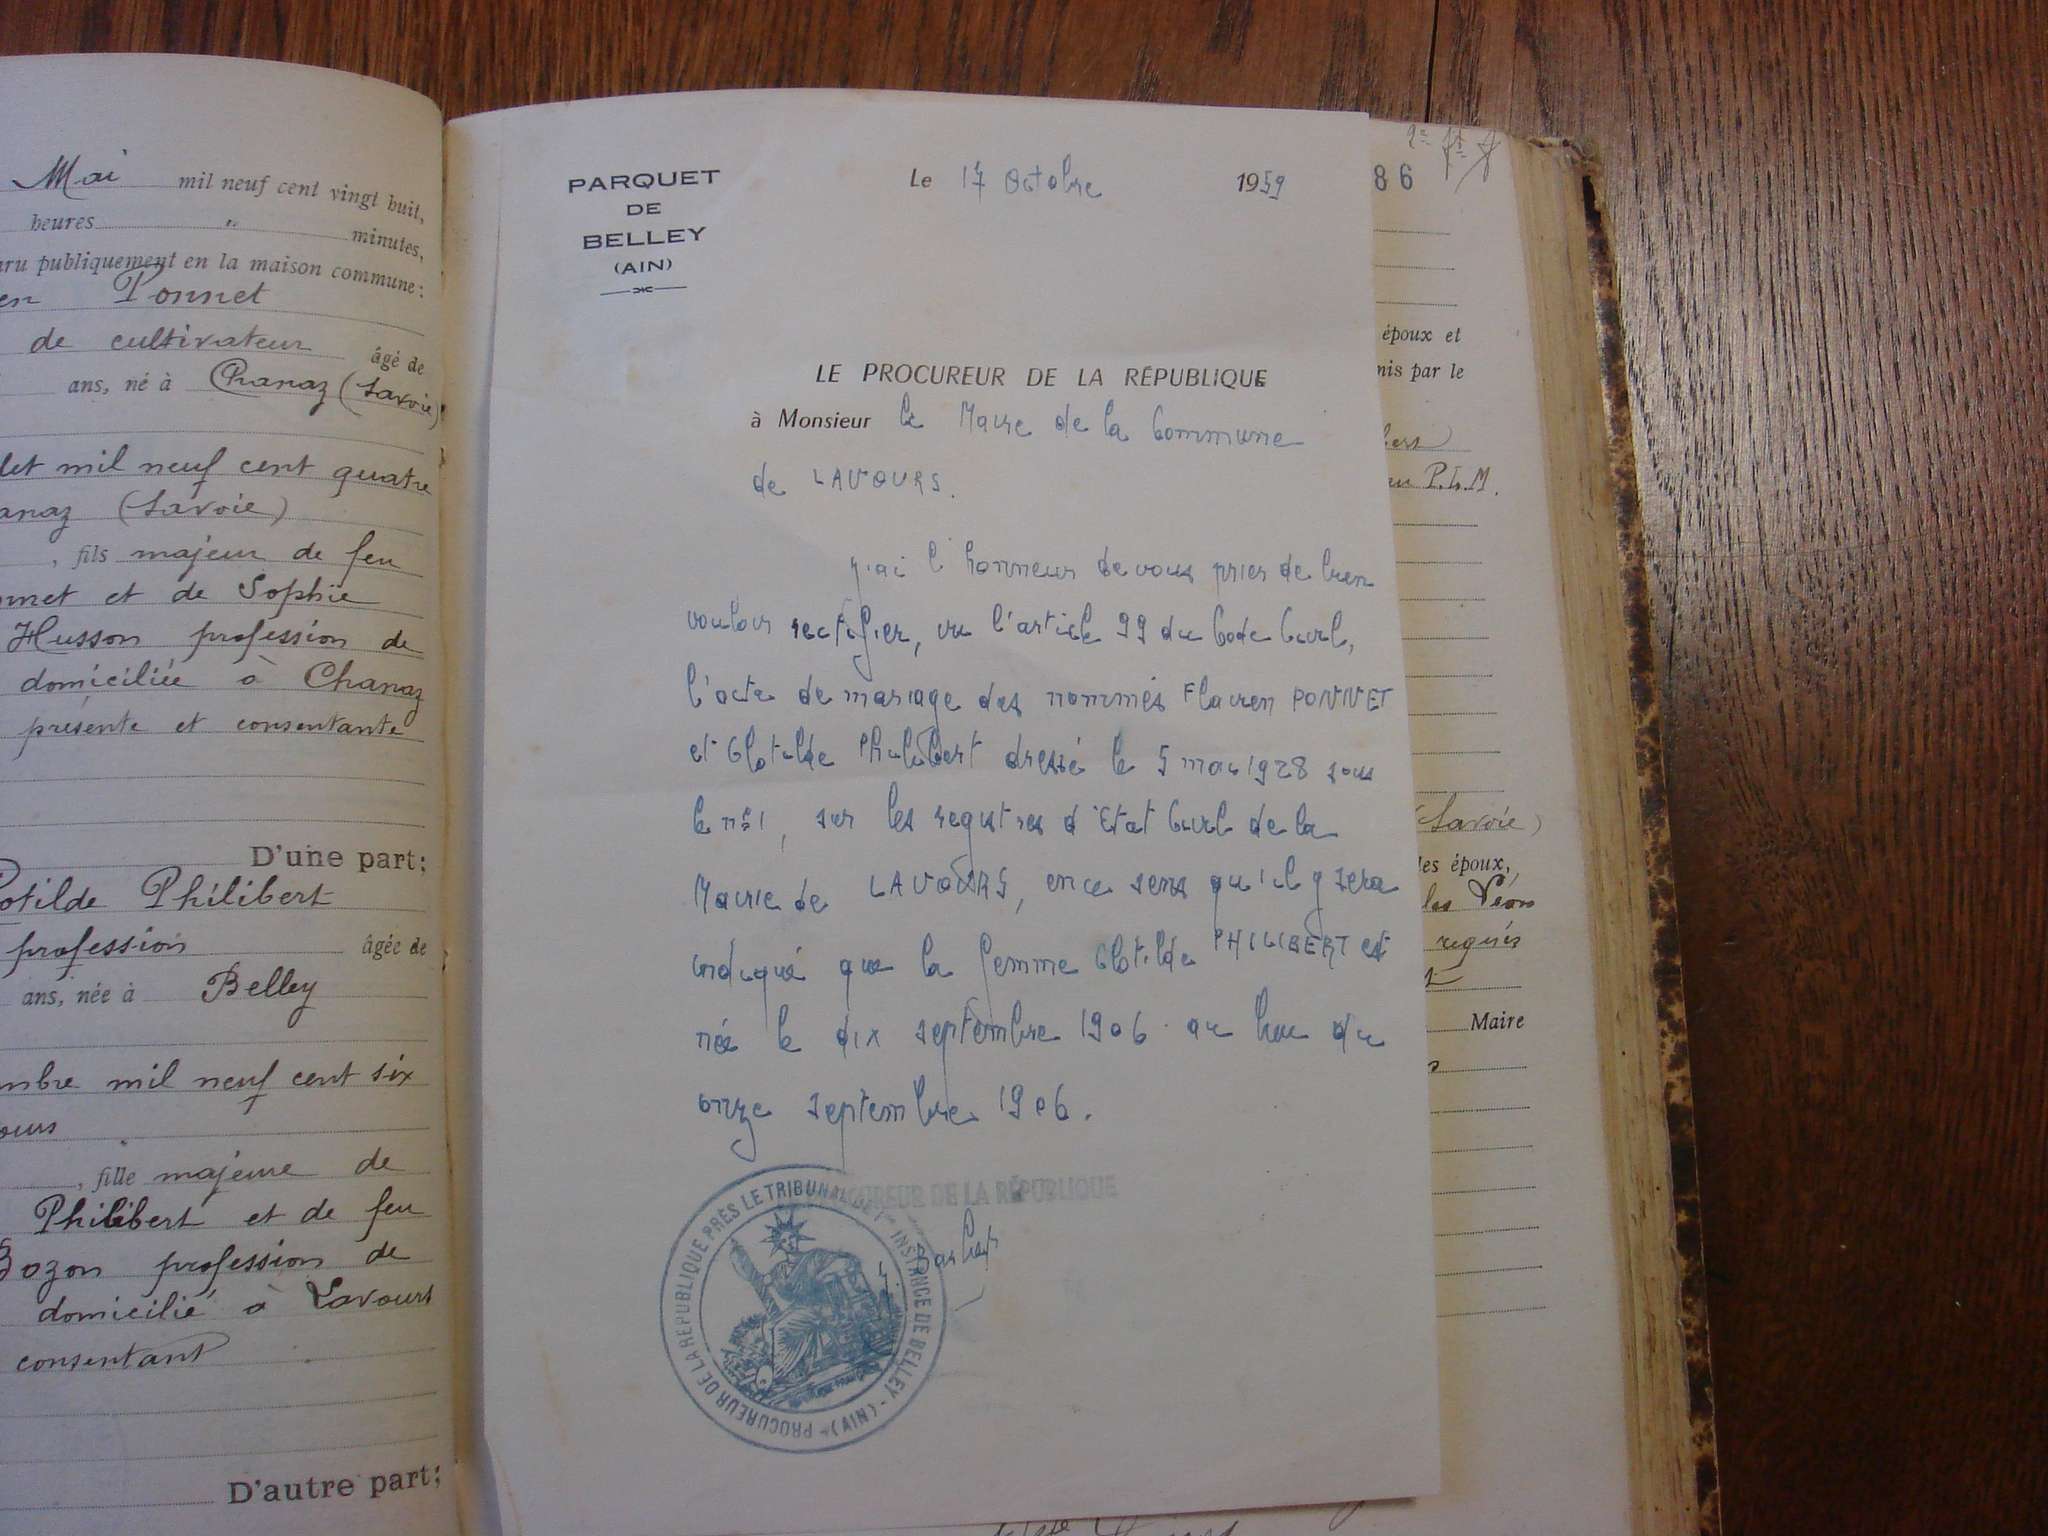 Mai mil neuf cent vingt huit,
heures " minutes,
publiquement en la maison commune:
Ponnet
de cultivateur âgé de
ans, né à Chanaz (Savoie)
mil neuf cent quatre
(Savoie)
, fils majeur de feu
et de Sophie
Husson profession de
domiciliée à Chanaz
présente et consentante
D'une part;
Philibert
profession âgée de
ans, née à Belley
mil neuf cent six
, fille majeure de
Philibert et de feu
Bozon profession de
domicilié à Lavours
consentant
D'autre part;
PARQUET
DE
BELLEY
(AIN)
Le 17 Octobre 1959
LE PROCUREUR DE LA RÉPUBLIQUE
à Monsieur le Maire de la Commune
de LAVOURS.
J'ai l'honneur de vous prier de bien
vouloir rectifier, vu l'article 99 du Code Civil,
l'acte de mariage des nommés Flavien PONNET
et Clotilde Philibert dressé le 5 mai 1928 sous
le n° 1, sur les registres d'Etat Civil de la
Mairie de LAVOURS, en ce sens qu'il y sera
indiqué que la femme Clotilde PHILIBERT est
née le dix septembre 1906 au lieu du
onze septembre 1906.
PROCUREUR DE LA RÉPUBLIQUE PRÈS LE TRIBUNAL DE 1re INSTANCE DE BELLEY - (AIN)
DE LA RÉPUBLIQUE
86
époux et
par le
P.L.M.
(Savoie)
les époux,
requis
Maire